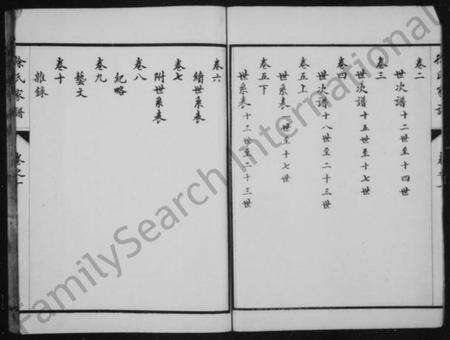 卷二
世次譜 十二世至十四世
卷三
世次譜 十五世至十七世
卷四
世次譜 十八世至二十三世
卷五上
世系表 世至十七世
卷五下
世系表 十三世至二十三世
卷六
續世系表
卷七
附世系表
卷八
紀略
卷九
藝文
卷十
雜錄
徐氏家譜
FamilySearch International